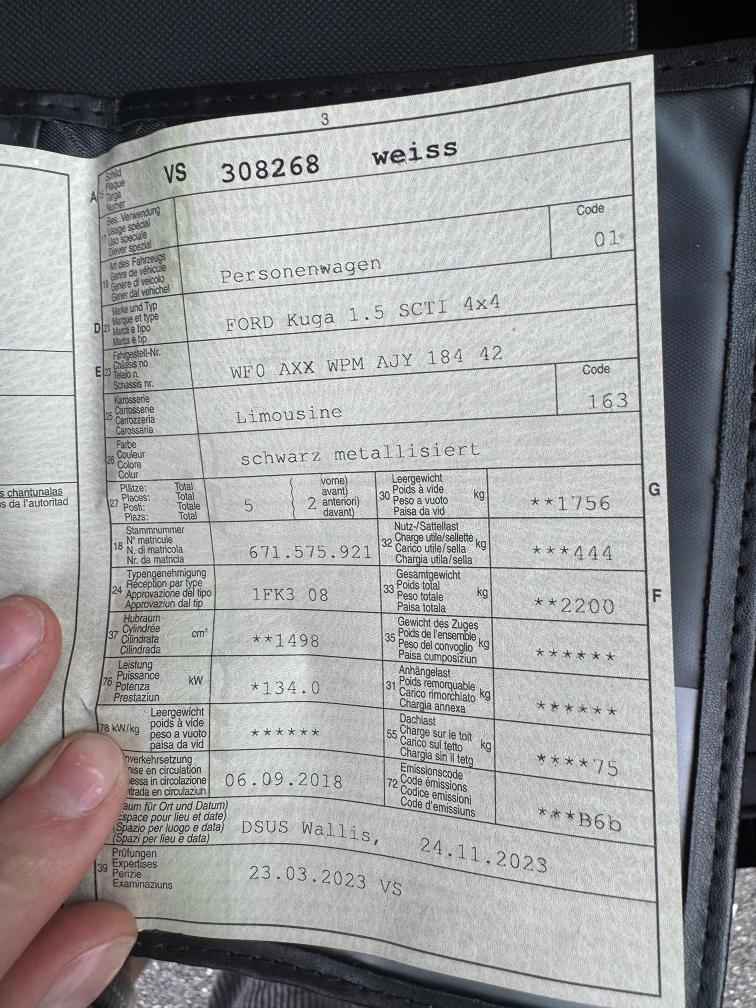 3
A Schild
15 Plaque
Targa
Numer
VS 308268 weiss
Bes. Verwendung
17 Usage spécial
Uso speciale
Diever spezial
Code
01
Art des Fahrzeugs
19 Genre de véhicule
Genere di veicolo
Gener dal vehichel
Personenwagen
D 21 Marke und Typ
Marque et type
Marca e tipo
Marca e tip
FORD Kuga 1.5 SCTI 4x4
E 23 Fahrgestell-Nr.
Châssis no
Telaio n.
Schassis nr.
WF0 AXX WPM AJY 184 42
25 Karosserie
Carrosserie
Carrozzeria
Carossaria
Limousine
Code
163
26 Farbe
Couleur
Colore
Colur
schwarz metallisiert
s chantunalas
s da l'autoritad
27 Plätze: Total
Places: Total
Posti: Totale
Plazs: Total
5 ( 2 vorne)
avant)
anteriori)
davant)
30 Leergewicht
Poids à vide
Peso a vuoto
Paisa da vid
kg
**1756
G
18 Stammnummer
N° matricule
N. di matricola
Nr. da matricla
671.575.921
32 Nutz-/Sattellast
Charge utile/sellette
Carico utile/sella
Chargia utila/sella
kg
***444
24 Typengenehmigung
Réception par type
Approvazione del tipo
Approvaziun dal tip
1FK3 08
33 Gesamtgewicht
Poids total
Peso totale
Paisa totala
kg
**2200
F
37 Hubraum
Cylindrée
Cilindrata
Cilindrada
cm³
**1498
35 Gewicht des Zuges
Poids de l'ensemble
Peso del convoglio
Paisa cumposiziun
kg
******
76 Leistung
Puissance
Potenza
Prestaziun
kW
*134.0
31 Anhängelast
Poids remorquable
Carico rimorchiato
Chargia annexa
kg
******
78 kW/kg
Leergewicht
poids à vide
peso a vuoto
paisa da vid
******
55 Dachlast
Charge sur le toit
Carico sul tetto
Chargia sin il tetg
kg
****75
nverkehrsetzung
ise en circulation
essa in circolazione
ntrada en circulaziun
06.09.2018
72 Emissionscode
Code émissions
Codice emissioni
Code d'emissiuns
***B6b
aum für Ort und Datum)
Espace pour lieu et date)
(Spazio per luogo e data)
(Spazi per lieu e data)
DSUS Wallis, 24.11.2023
39 Prüfungen
Expertises
Perizie
Examinaziuns
23.03.2023 VS